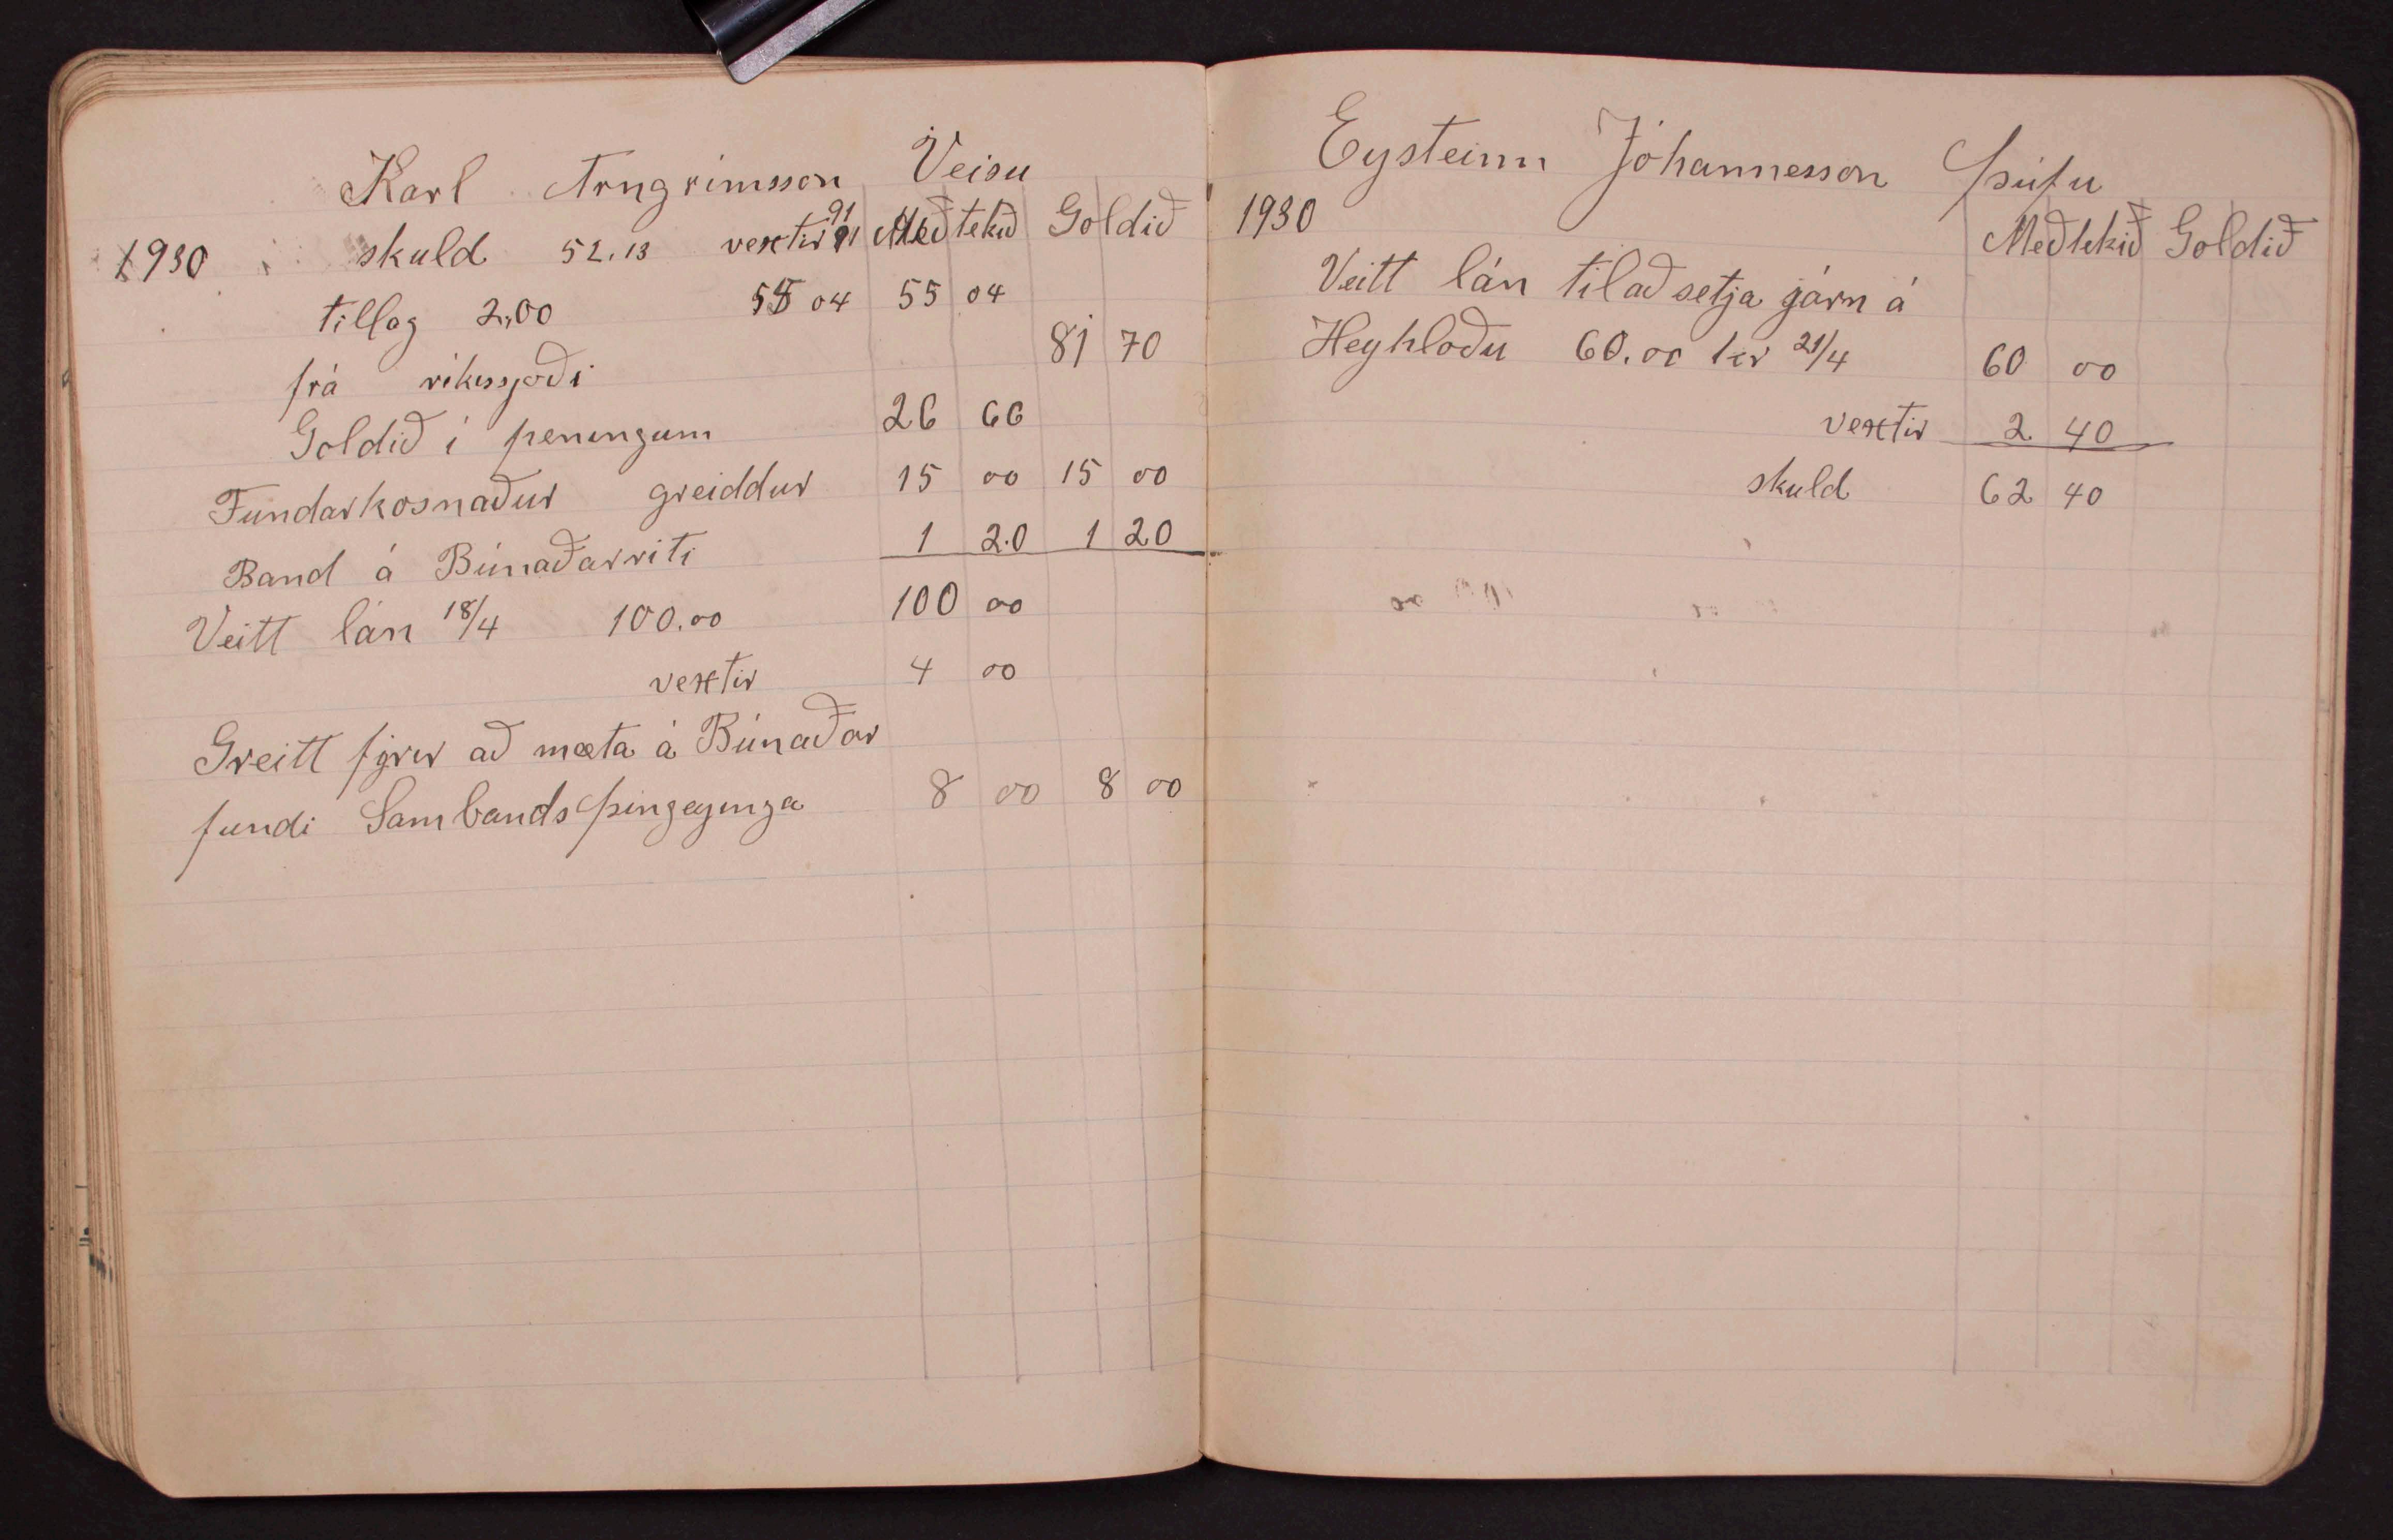 Karl Arngrímsson Veisu
1930 skuld 52.13 vextir 91 Meðtekið Goldið
tillag 2,00 55 04 55 04
frá ríkissjoði 81 70
Goldið í peningum 26 66
Fundarkosnaður greiddur 15 00 15 00
Band á Búnaðarriti 1 20 1 20
Veitt lán 18/4 100.00 100 00
vextir 4 00
Greitt fyrir að mæta á Búnaðar
fundi Sambands þingeyinga 8 00 8 00
Eysteinn Jóhannesson Þúfu
1930 Meðtekið Goldið
Veitt lán til að setja járn á
Heyhloðu 60.00 kr 21/4 60 00
vextir 2 40
skuld 62 40